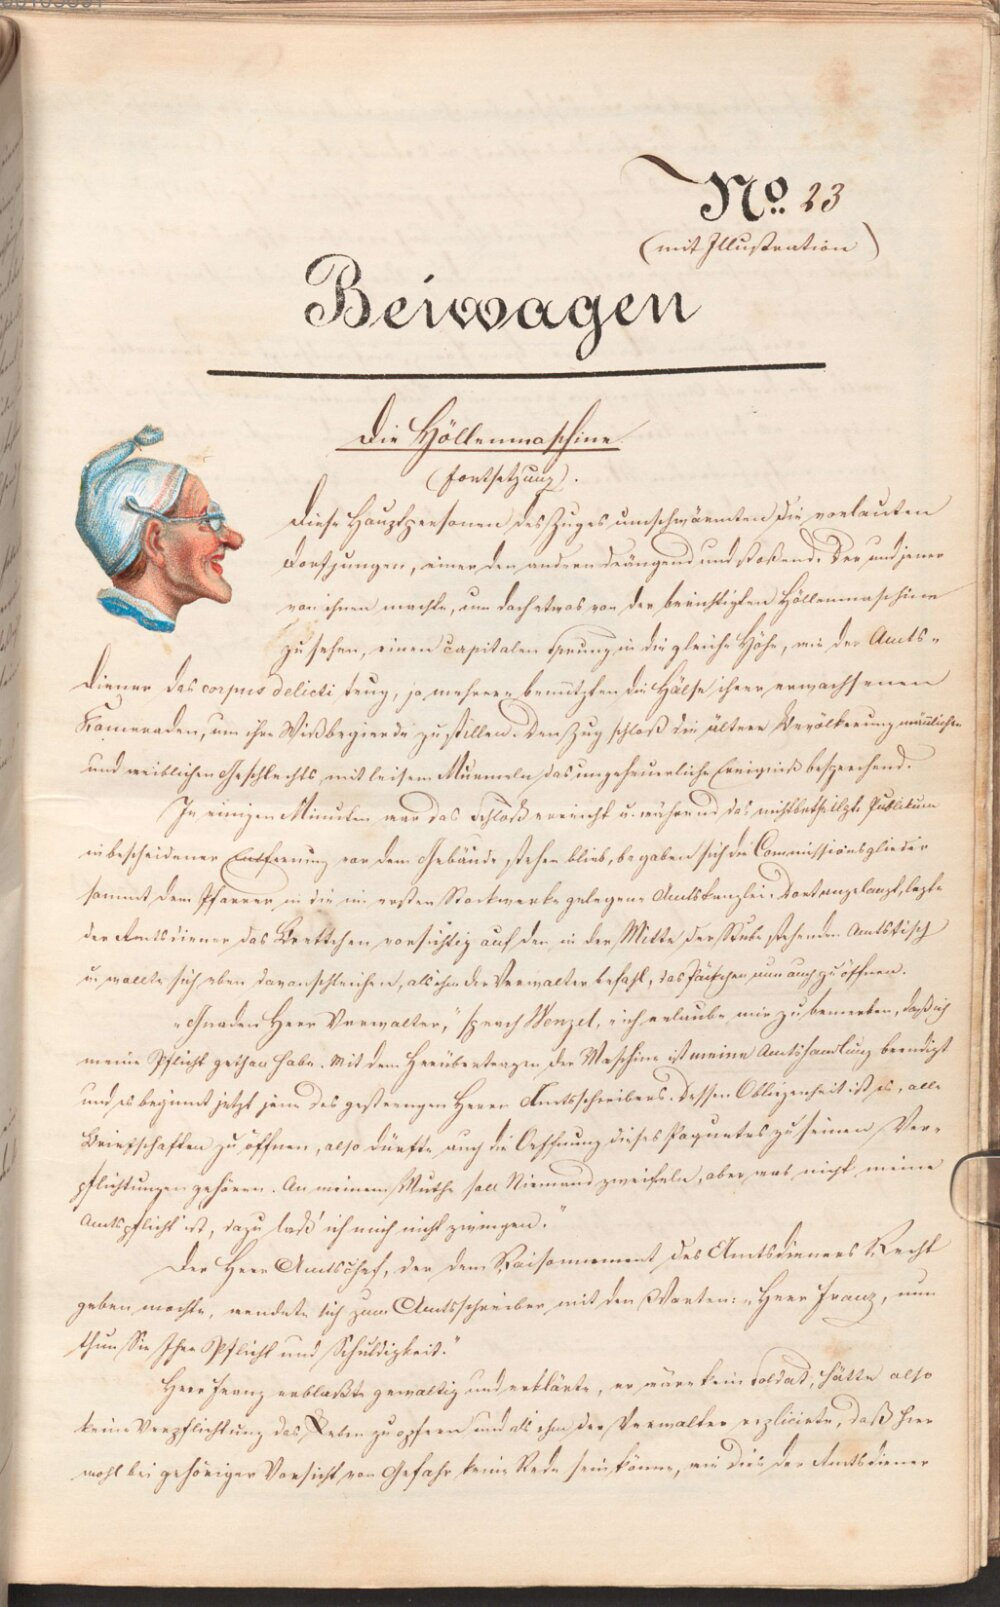 No. 23
(mit Illustration)
Beiwagen
Die Höllenmaschine.
(Fortsetzung).
Diese Hauptpersonen des Zuges umschwärmten die vorlauten
Dorfjungen, einer den andern drängend und stoßend. Der und jener
von ihnen machte, um doch etwas von der berüchtigten Höllenmaschine
zu sehen, einen capitalen Sprung in die gleiche Höhe, wie der Amts-
diener das corpus delicti trug, ja mehrere benützten die Hälse ihrer erwachsenen
Kameraden, um ihre Wißbegierde zu stillen. Den Zug schloß die ältere Bevölkerung männlichen
und weiblichen Geschlechts mit leisem Murmeln das ungeheuerliche Ereigniß besprechend.
In einigen Minuten war das Schloß erreicht u. während das nichtbetheiligte Publikum
in bescheidener Entfernung vor dem Gebäude stehen blieb, begaben sich die Commissionsglieder
sammt dem Pfarrer in die im ersten Stockwerke gelegene Amtskanzlei. Dort angelangt, legte
der Amtsdiener das Brettchen vorsichtig auf den in der Mitte der Stube stehenden Amtstisch
u. wollte sich eben davonschleichen, als ihm der Verwalter befahl, das Päckchen nun auch zu öffnen.
„Gnaden Herr Verwalter," sprach Wenzel, „ich erlaube mir zu bemerken, daß ich
meine Pflicht gethan habe. Mit dem Herübertragen der Maschine ist meine Amtshandlung beendigt
und es beginnt jetzt jene des gestrengen Herrn Amtsschreibers. Dessen Obliegenheit ist es, alle
Briefschaften zu öffnen, also dürfte auch die Oeffnung dieses Paquetes zu seinen Ver-
pflichtungen gehören. An meinem Muthe soll Niemand zweifeln, aber was nicht meine
Amtspflicht ist, dazu laß' ich mich nicht zwingen."
Der Herr Amtschef, der dem Raisonnement des Amtsdieners Recht
geben mochte, wendete sich zum Amtsschreiber mit den Worten: „Herr Franz, nun
thun Sie Ihre Pflicht und Schuldigkeit."
Herr Franz erblaßte gewaltig und erklärte, er wäre kein Soldat, hätte also
keine Verpflichtung das Leben zu opfern und als ihm der Verwalter explicirte, daß hier
wohl bei gehöriger Vorsicht von Gefahr keine Rede sein könne, wie dies der Amtsdiener